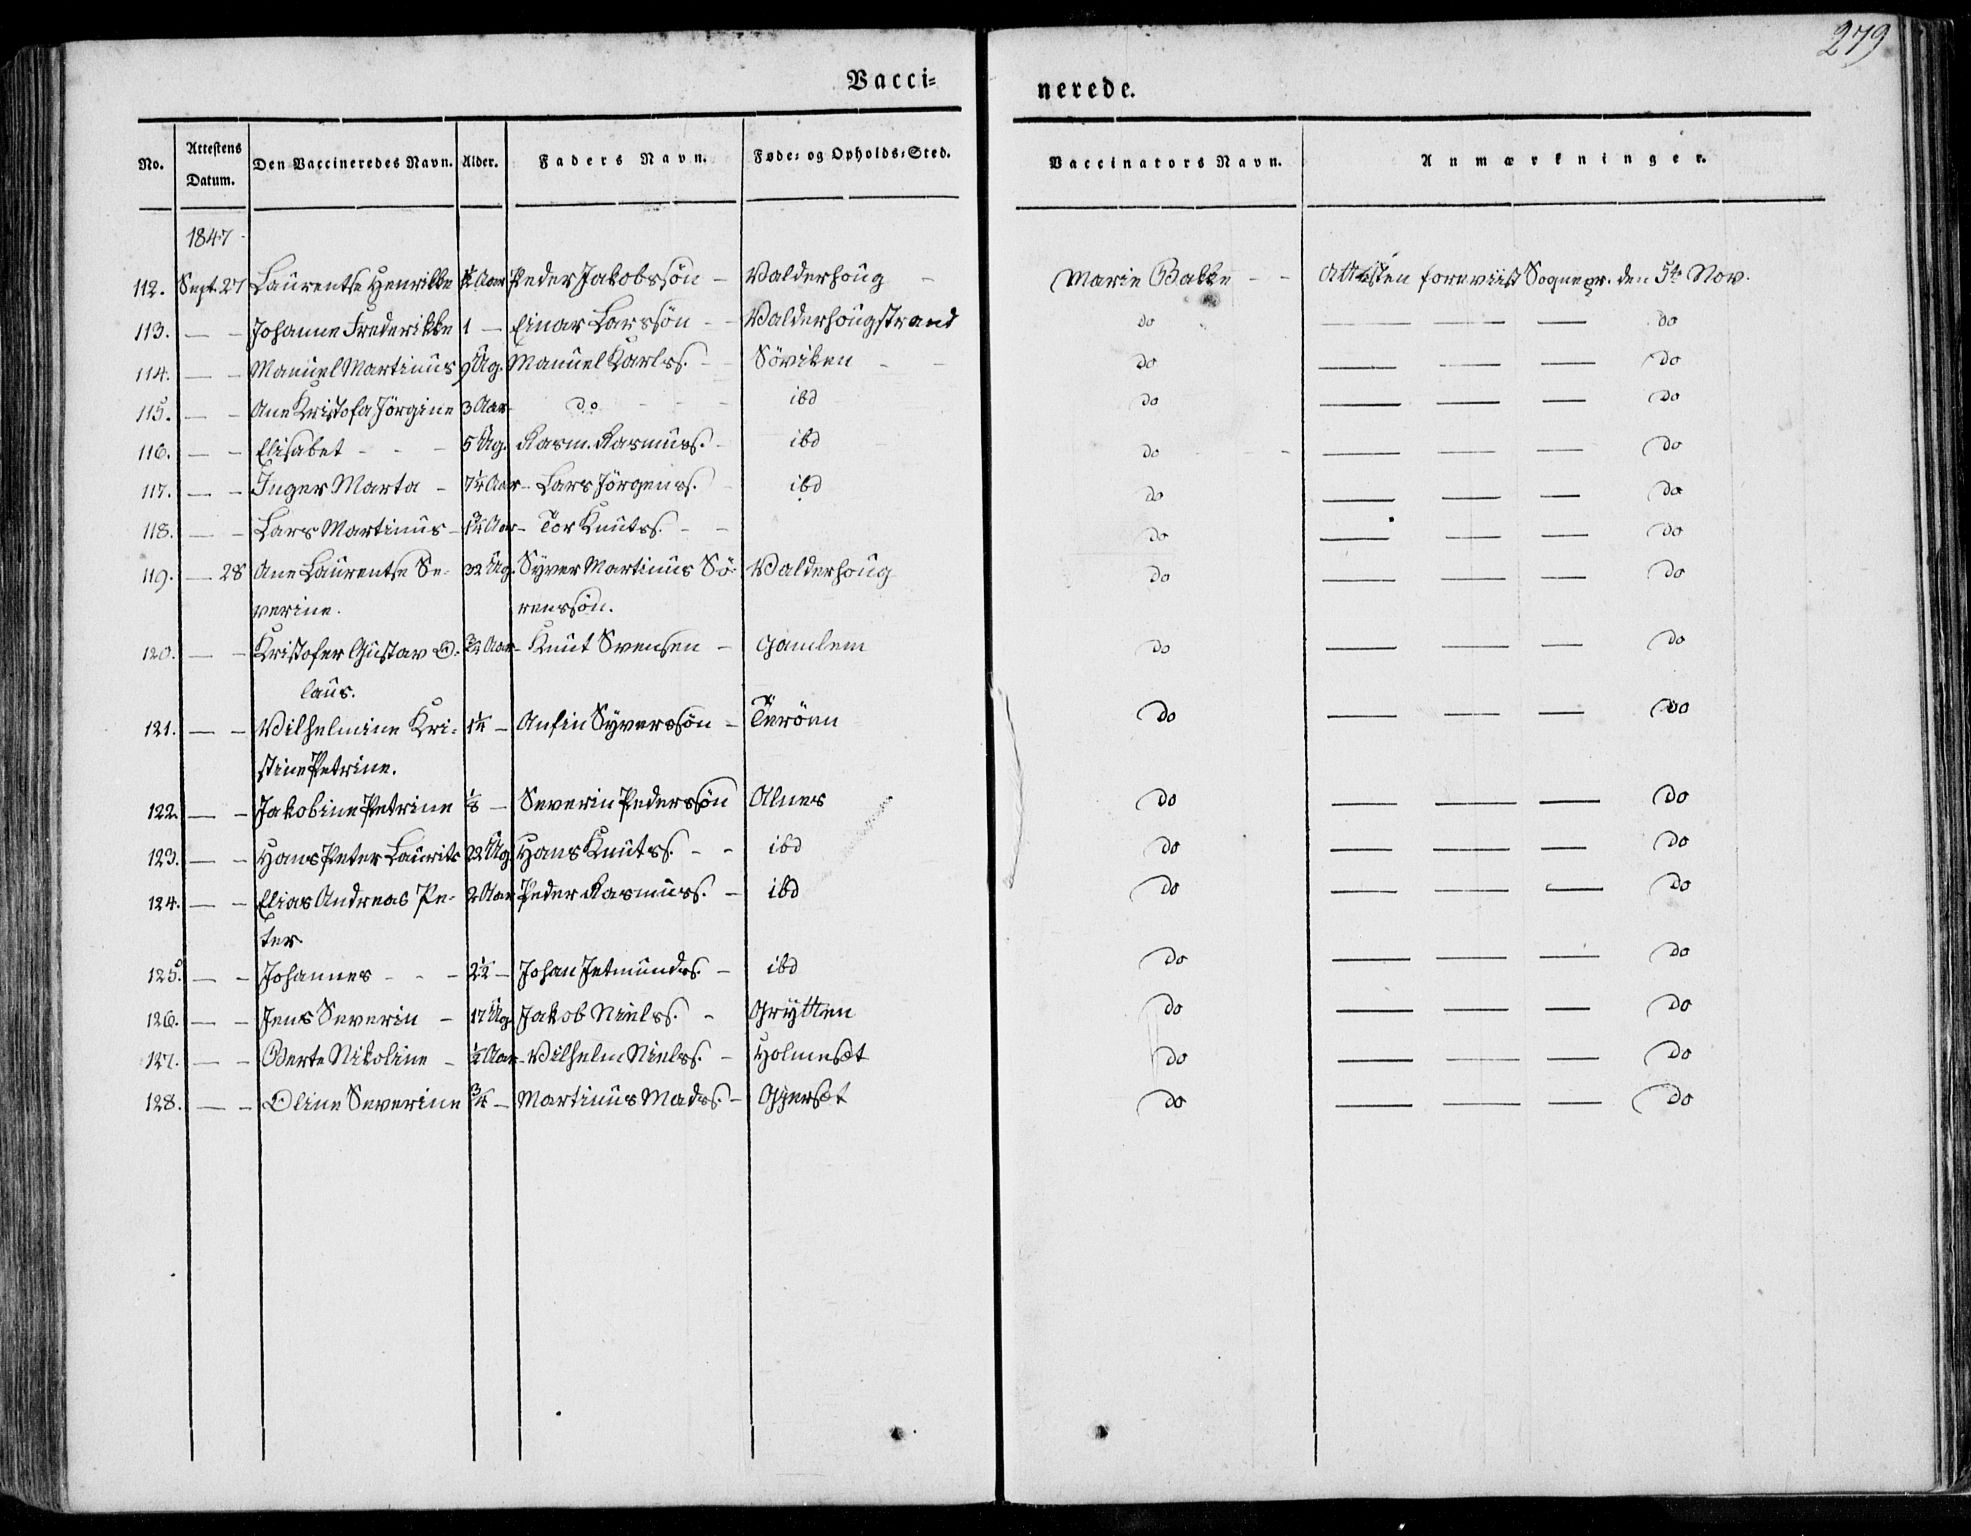 279
Vacci-
nerede.
No. Attestens Datum. Den Vaccineredes Navn. Alder. Faders Navn. Føde- og Opholds-Sted. Vaccinators Navn. Anmærkninger.
1847
112. Sept. 27 Laurentse Henrikke Aar Peder Jakobssøn – Valderhoug – Marie Bakke – – Attesten foreviist Sognepr. den 5te Nov.
113. — – Johanne Frederikke 1 – Einar Larssøn – – Valderhougstrand do — — — do
114. — – Manuel Martinus 9 Ug. Manuel Karlss. – Söviken – – do — — — do
115. — – Ane Kristofa Jörgine 3 Aar do – – – ibd do — — — do
116. — – Elisabet – – – 5 Ug. Rasm. Rasmuss. – ibd do — — — do
117. — – Inger Marta – 7½ Aar – Lars Jörgens. – ibd do — — — do
118. — – Lars Martinus – Aar – Tor Knutss. – – do — — — do
119. — 28 Ane Laurentse Se- 32 Ug. Syver Martinus Sö- Valderhoug do — — — do
verine. renssøn.
120. — – Kristofer Gustav O- Aar – Knut Svensen – Gamlem do — — — do
laus.
121. — – Vilhelmine Kri- – Anfin Syverssøn – Turöen do — — — do
stine Petrine.
122. — – Jakobine Petrine – Severin Pederssøn Alnes do — — — do
123. — – Hans Peter Laurits 22 Ug. Hans Knutss. – – ibd do — — — do
124. — – Elias Andreas Pe- 2 Aar Peder Rasmuss. – ibd do — — — do
ter
125. — – Johannes – – – 2½ – Johan Jetmunds. – ibd do — — — do
126. — – Jens Severin – 17 Ug. Jakob Nielss. – Grytten do — — — do
127. — – Berte Nikoline – ½ Aar – Vilhelm Nielss. – Holmesæt do — — — do
128. — – Oline Severine ¾ – Martinus Madss. – Gjersæt do — — — do